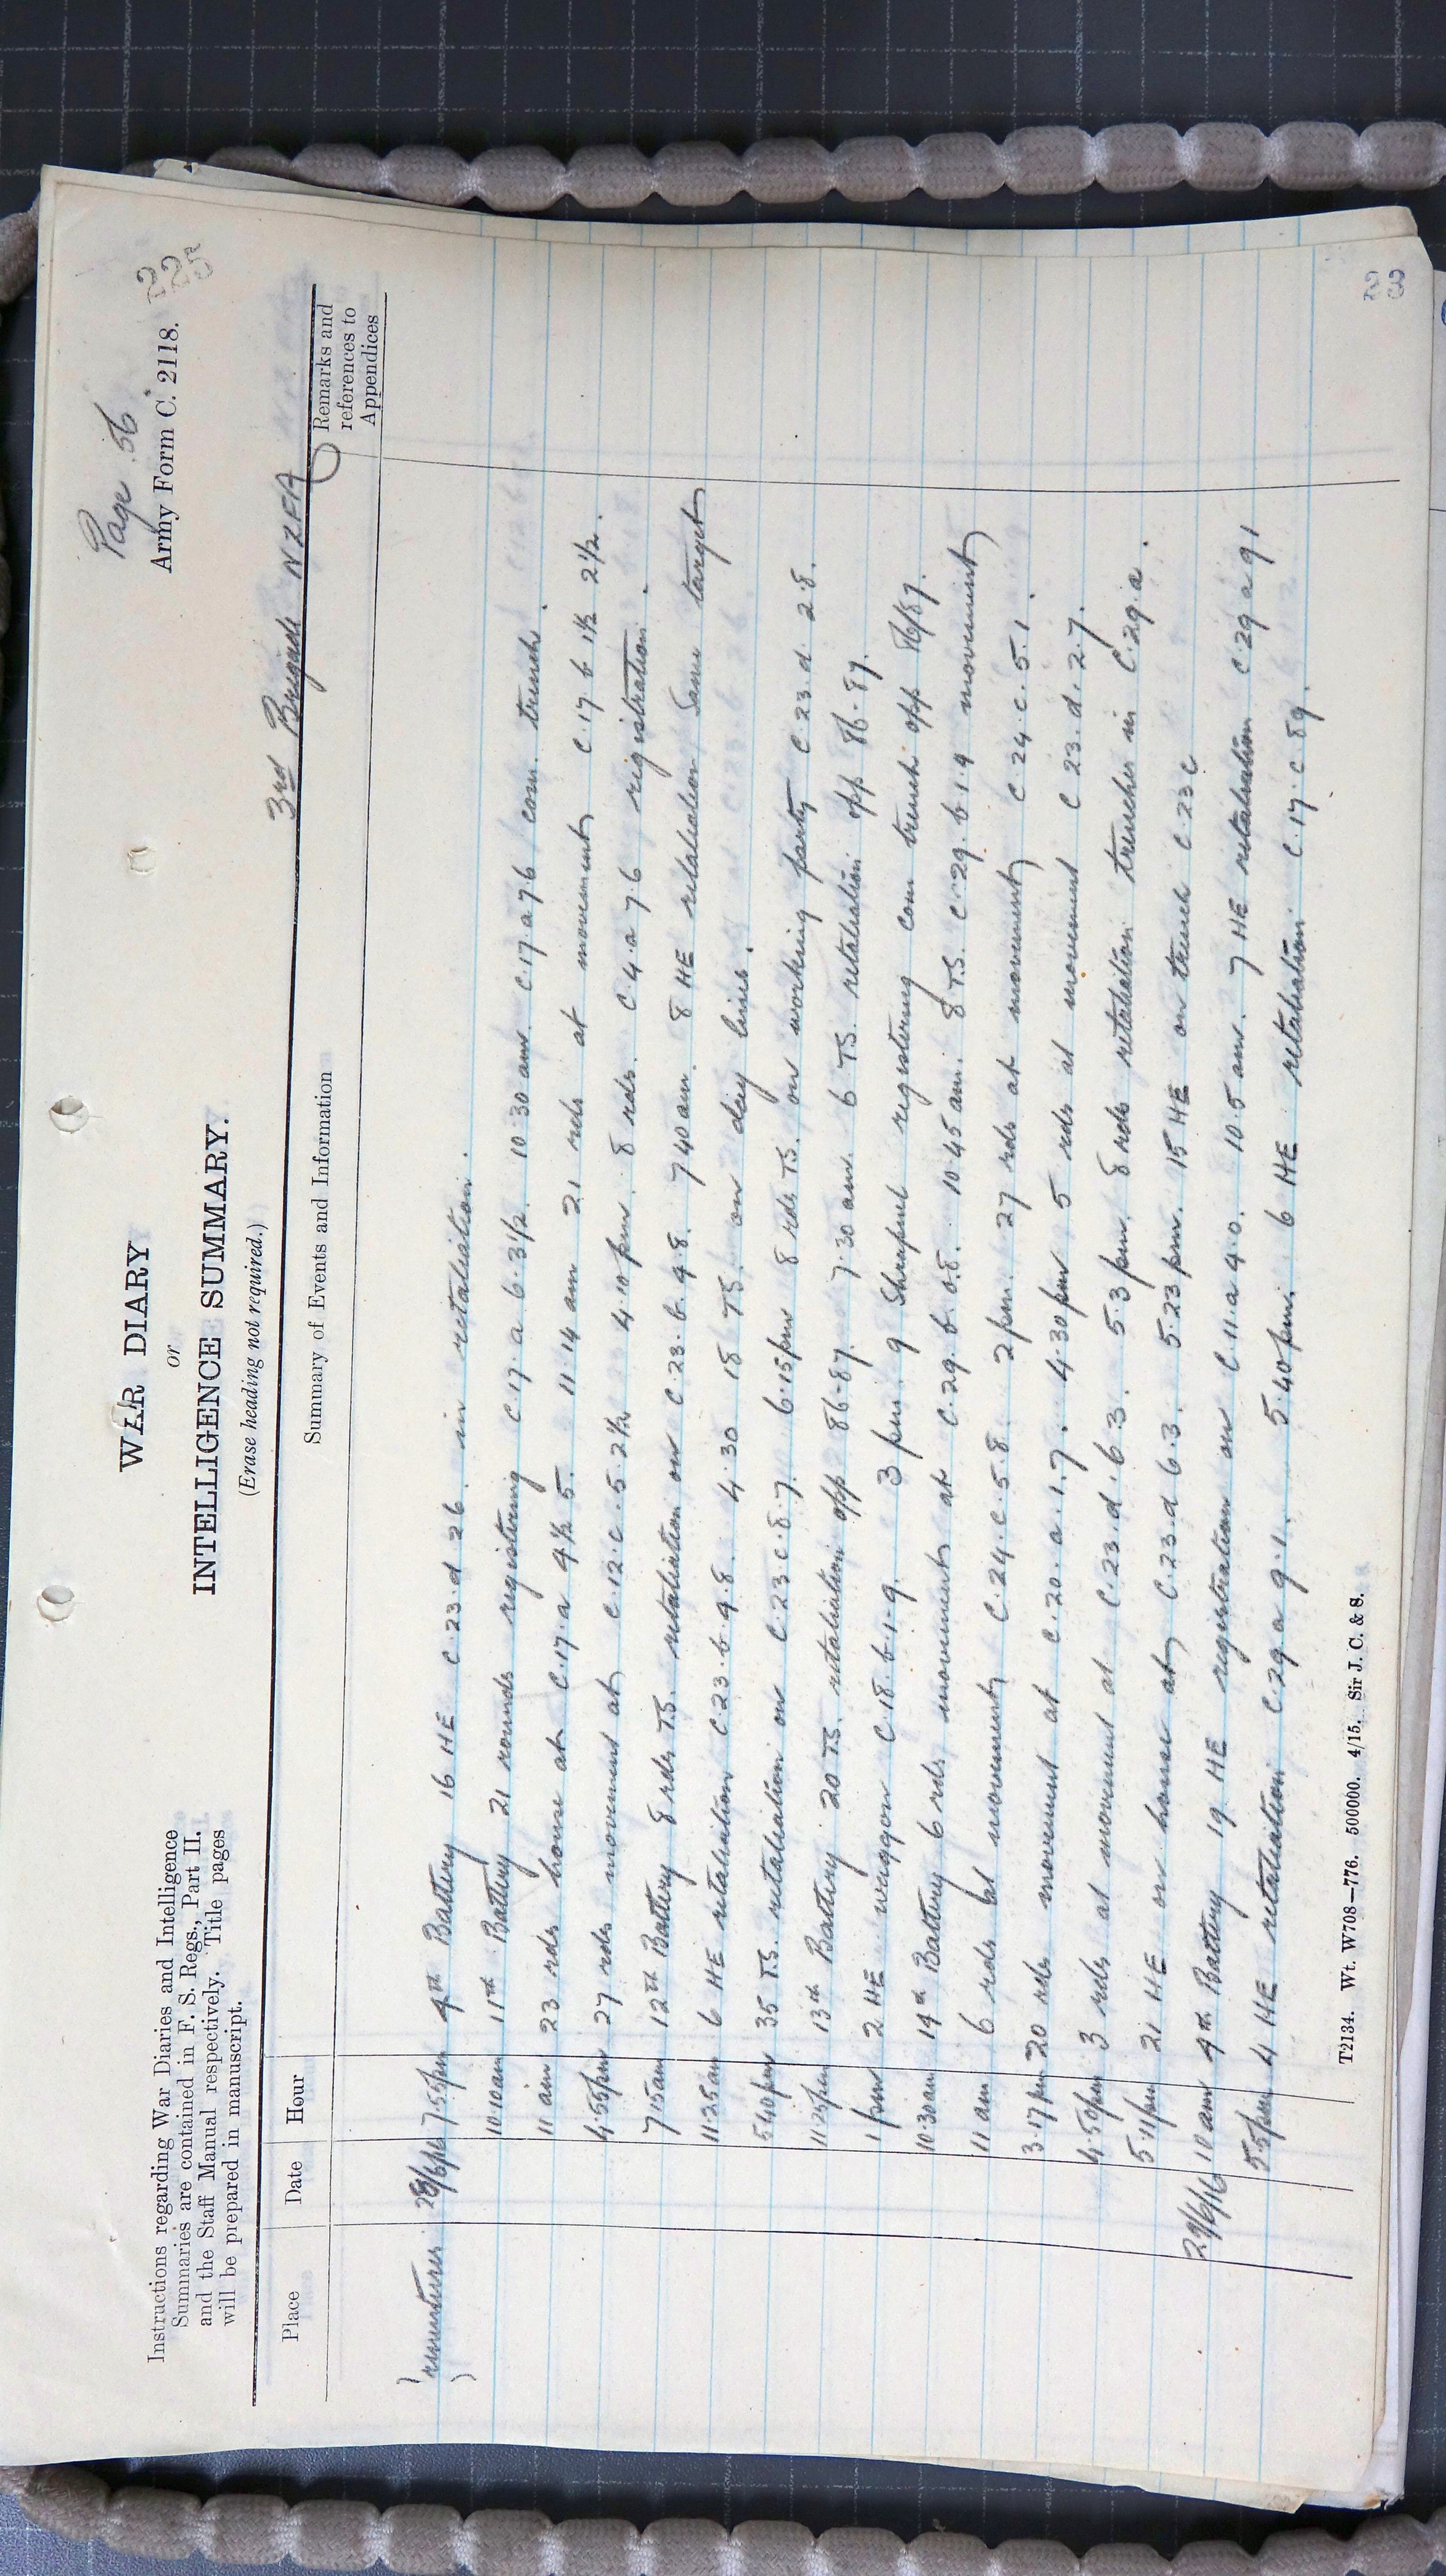 Page 56
225
Army Form C. 2118.
WAR DIARY
or
INTELLIGENCE SUMMARY.
(Erase heading not required.)
Instructions regarding War Diaries and Intelligence
Summaries are contained in F. S. Regs., Part II.
and the Staff Manual respectively. Title pages
will be prepared in manuscript.
3rd Brigade NZFA
Place Date Hour Summary of Events and Information Remarks and references to Appendices
Armentieres 28/6/16 7.55pm 4th Battery 16 HE C.23.d 26 in retaliation.
10.10am 11th Battery 21 rounds registering C.17.a 6.3½. 10.30 am C.17.a 7.6 com. trench.
11 am 23 rds house at C.17.a 4½ 5. 11.14 am 21 rds at movement C.17.b 1½ 2½.
4.55pm 27 rds movement at C.12.c.5.2½ 4.10 pm. 8 rds. C.4.a 7.6 registration.
7.15am 12th Battery 8 rds T.S. retaliation on C.23.b.9.8. 7.40 am. 8 HE retaliation same target
11.25am 6 HE retaliation C.23.b.9.8. 4.30 18 TS. on day lines.
5.40pm 35 T.S. retaliation on C.23.c.8.7. 6.15pm 8 rds TS. on working party C.23.d. 2.8.
11.25pm 13th Battery 20 TS. retaliation opp 86-87. 7.30 am. 6 TS. retaliation opp 86-87.
1 pm 2 HE waggon C.18.b.1.9. 3 pm. 9 Shrapnel registering com trench opp 86/87.
10.30am 14th Battery 6 rds movement at C.29.b.0.8. 10.45 am. 8 T.S. C.29.b.1.9 movement
11 am 6 rds at movement C.24.c.5.8. 2pm. 27 rds at movement C.24.c.5.1.
3.17pm 20 rds movement at C.20.a.1.7. 4.30pm 5 rds at movement C.23.d.2.7.
4.50pm 3 rds at movement at C.23.d.6.3. 5.3 pm. 8 rds retaliation trenches in C.29.a.
5.11pm 21 HE on house at C.23.d 6.3. 5.23 pm. 15 HE on trench C.23c
29/6/16 10 am 4th Battery 19 HE registration on C.11.a 4.0. 10.5 am. 7 HE retaliation C.29 a 91
5.5pm 4 HE retaliation C.29 a 9.1. 5.40 pm. 6 HE retaliation C.17.c.89.
T2134. Wt. W708—776. 500000. 4/15. Sir J. C. & S.
23